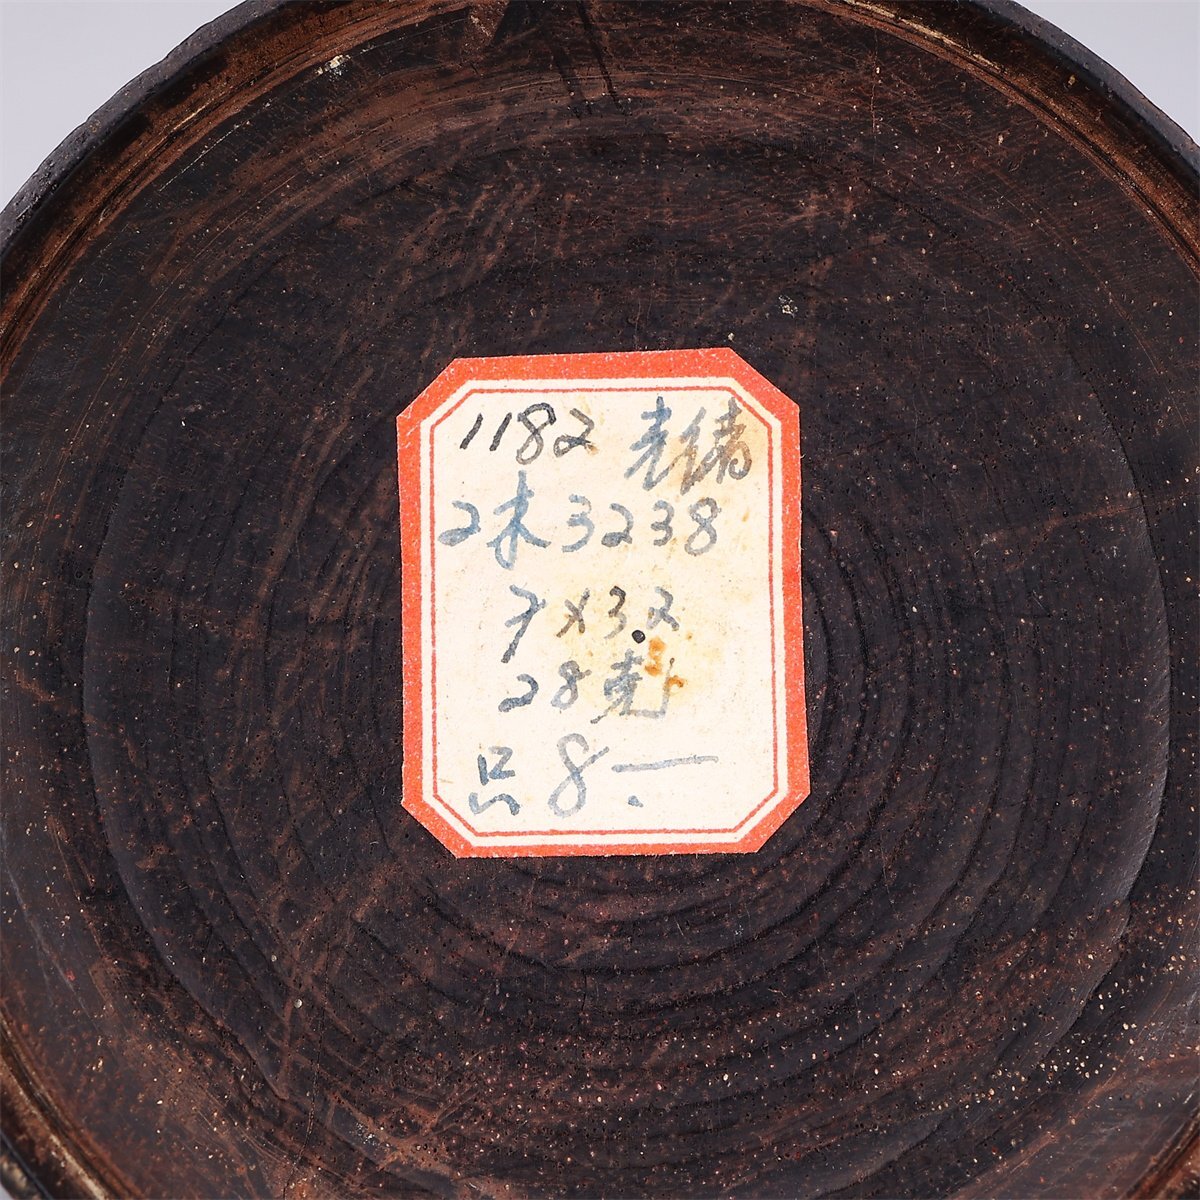 1182 老储
2木3238
7×3.2
28克
只8.一